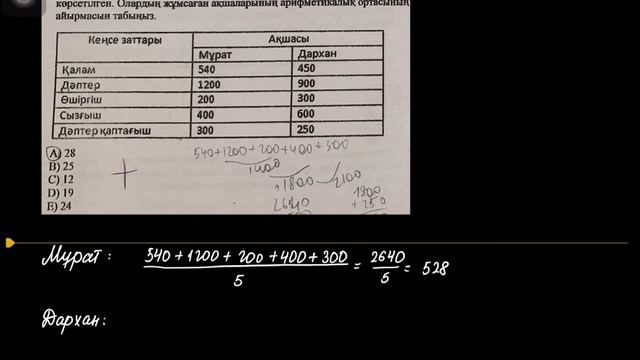 көрсетілген. Олардың жұмсаған ақшаларының арифметикалық ортасының
айырмасын табыңыз.
Кеңсе заттары Ақшасы
Мұрат Дархан
Қалам 540 450
Дәптер 1200 900
Өшіргіш 200 300
Сызғыш 400 600
Дәптер қаптағыш 300 250
A) 28
B) 25
C) 12
D) 19
E) 24
540+1200+200+400+300
1400
1800 2100
2640
1900
+250
Мұрат: 540+1200+200+400+300 / 5 = 2640 / 5 = 528
Дархан: